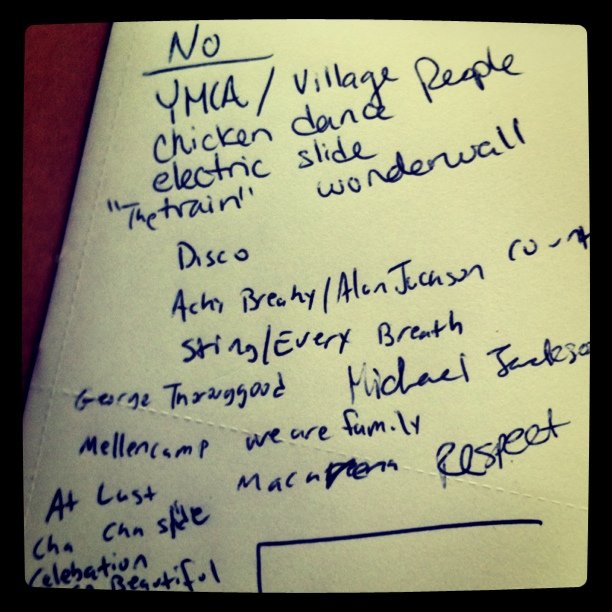 No
YMCA / Village People
chicken dance
electric slide
"The train" wonderwall
Disco
Achy Breaky / Alan Jackson coun
Sting / Every Breath
George Thorouggood Michael Jackso
Mellencamp we are family
At Last Macarena Respect
Cha Cha slide
Celebration
Beautiful